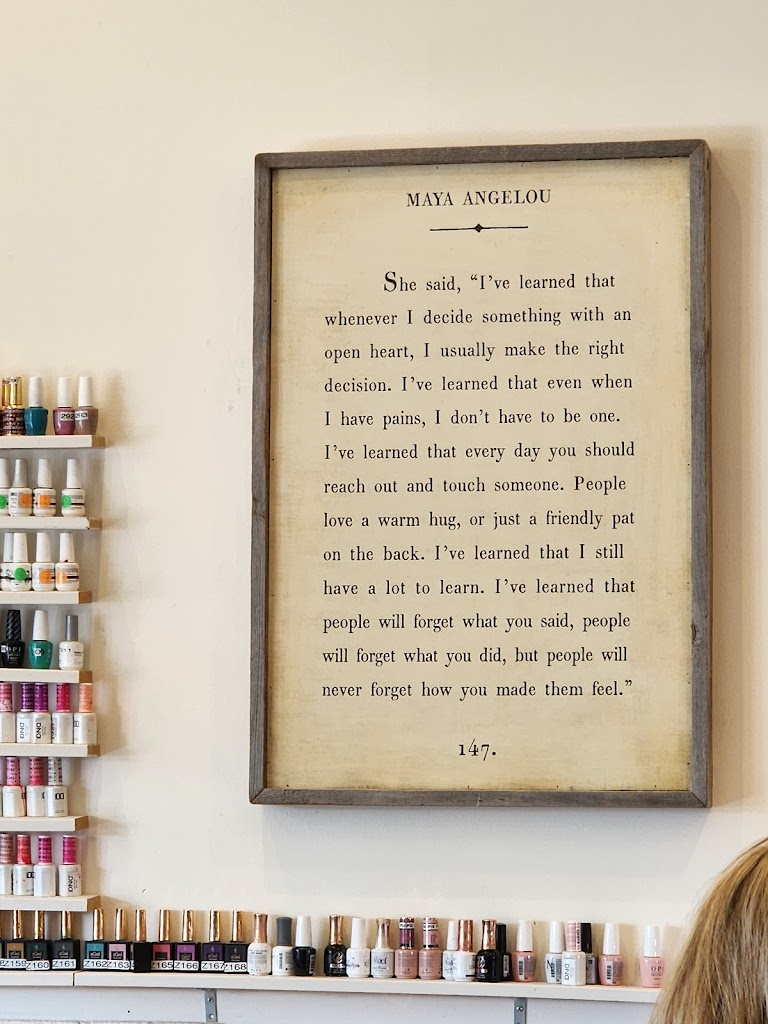 MAYA ANGELOU
She said, “I’ve learned that
whenever I decide something with an
open heart, I usually make the right
decision. I’ve learned that even when
I have pains, I don’t have to be one.
I’ve learned that every day you should
reach out and touch someone. People
love a warm hug, or just a friendly pat
on the back. I’ve learned that I still
have a lot to learn. I’ve learned that
people will forget what you said, people
will forget what you did, but people will
never forget how you made them feel.”
147.
292 293
OPI
DND
DND
DND
Z159 Z160 Z161 Z162 Z163 Z165 Z166 Z167 Z168
DND
OPI